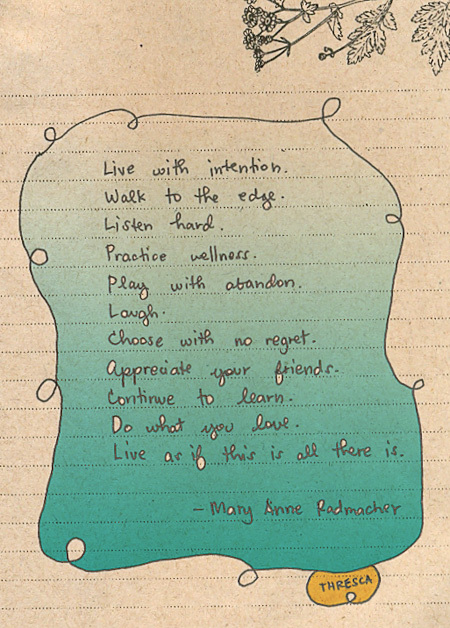 Live with intention.
Walk to the edge.
Listen hard.
Practice wellness.
Play with abandon.
Laugh.
Choose with no regret.
Appreciate your friends.
Continue to learn.
Do what you love.
Live as if this is all there is.
- Mary Anne Radmacher
THRESCA